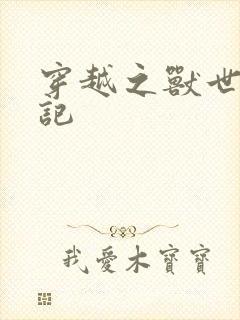 穿越之獸世
記
我愛木寶寶